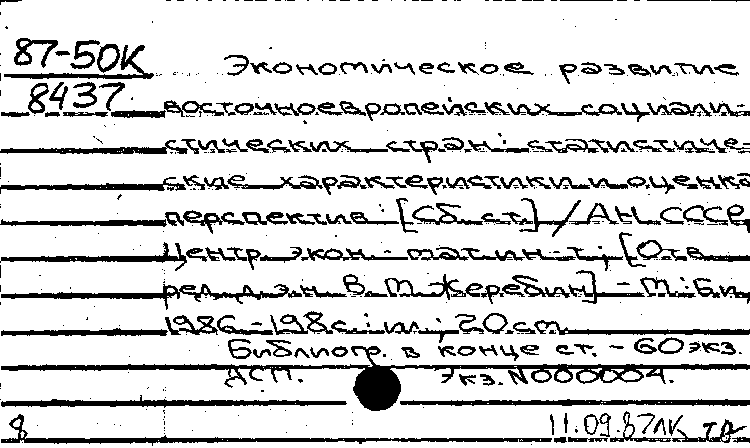 87-50К Экономическое развитие
8437 восточноевропейских социали-
стических стран: статистиче-
ские характеристики и оценка
перспектив: [Сб. ст.] / АН СССР,
Центр. экон.-мат. ин-т; [Отв.
ред. д.э.н. В. М. Жеребин] - М.: Б.и.,
1986. - 198 с.: ил.; 20 см.
Библиогр. в конце ст. - 60 экз.
ДСП. Экз. N000004.
8 11.09.87 ЛК